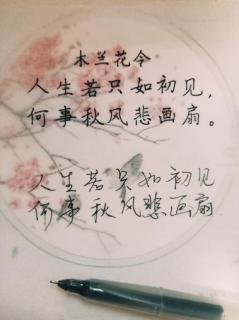 木兰花令
人生若只如初见,
何事秋风悲画扇。
人生若只如初见
何事秋风悲画扇